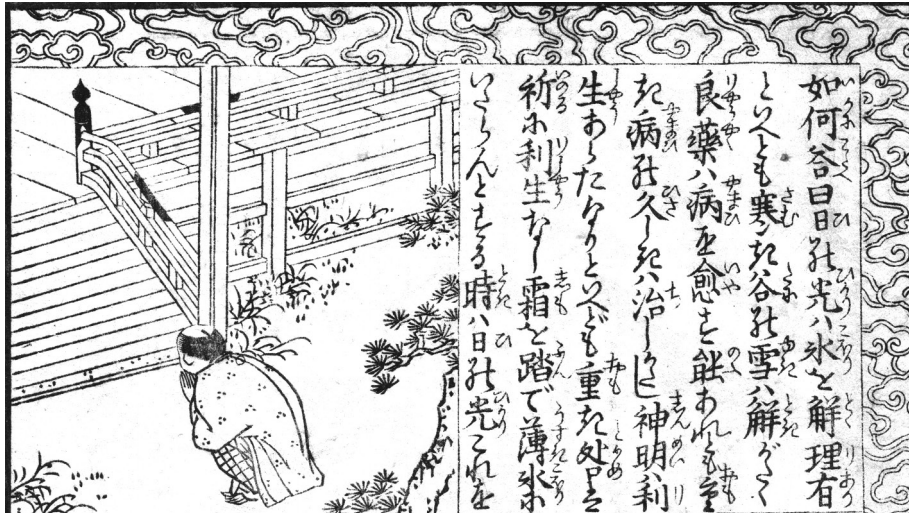 如何答曰日の光ハ氷を觧理有
といへども寒き谷の雪ハ觧がたく
良薬ハ病を愈す能あれども重
き病の久しきハ治しがたし神明利
生あらたなりといへども重き
祈に利生なし霜を踏で薄氷に
いたらんとする時ハ日の光これを